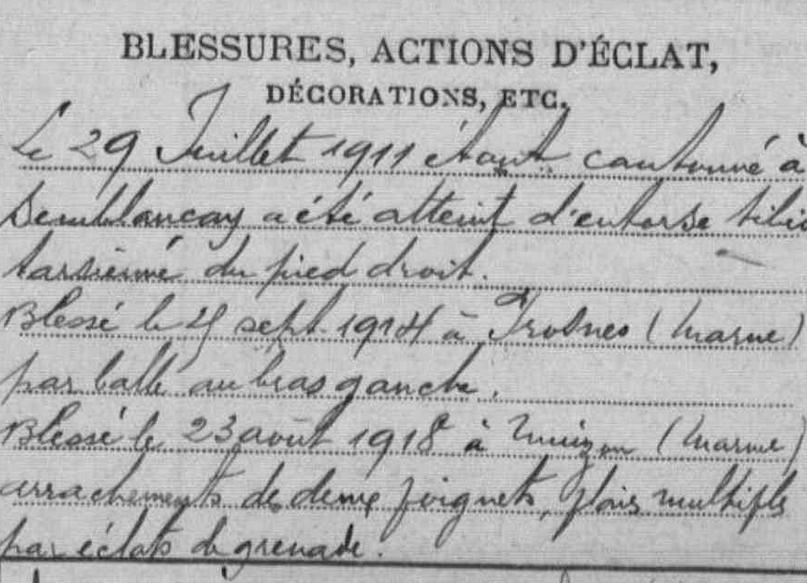 BLESSURES, ACTIONS D'ÉCLAT,
DÉCORATIONS, ETC.
Le 29 Juillet 1911 étant cantonné à
Semblancay a été atteint d'entorse tibio
tarsienne du pied droit.
Blessé le sept. 1914 à Prosnes (Marne)
par balle au bras gauche.
Blessé le 23 août 1918 à Muizon (Marne)
arrachements des deux poignets, plaies multiples
par éclats de grenade.